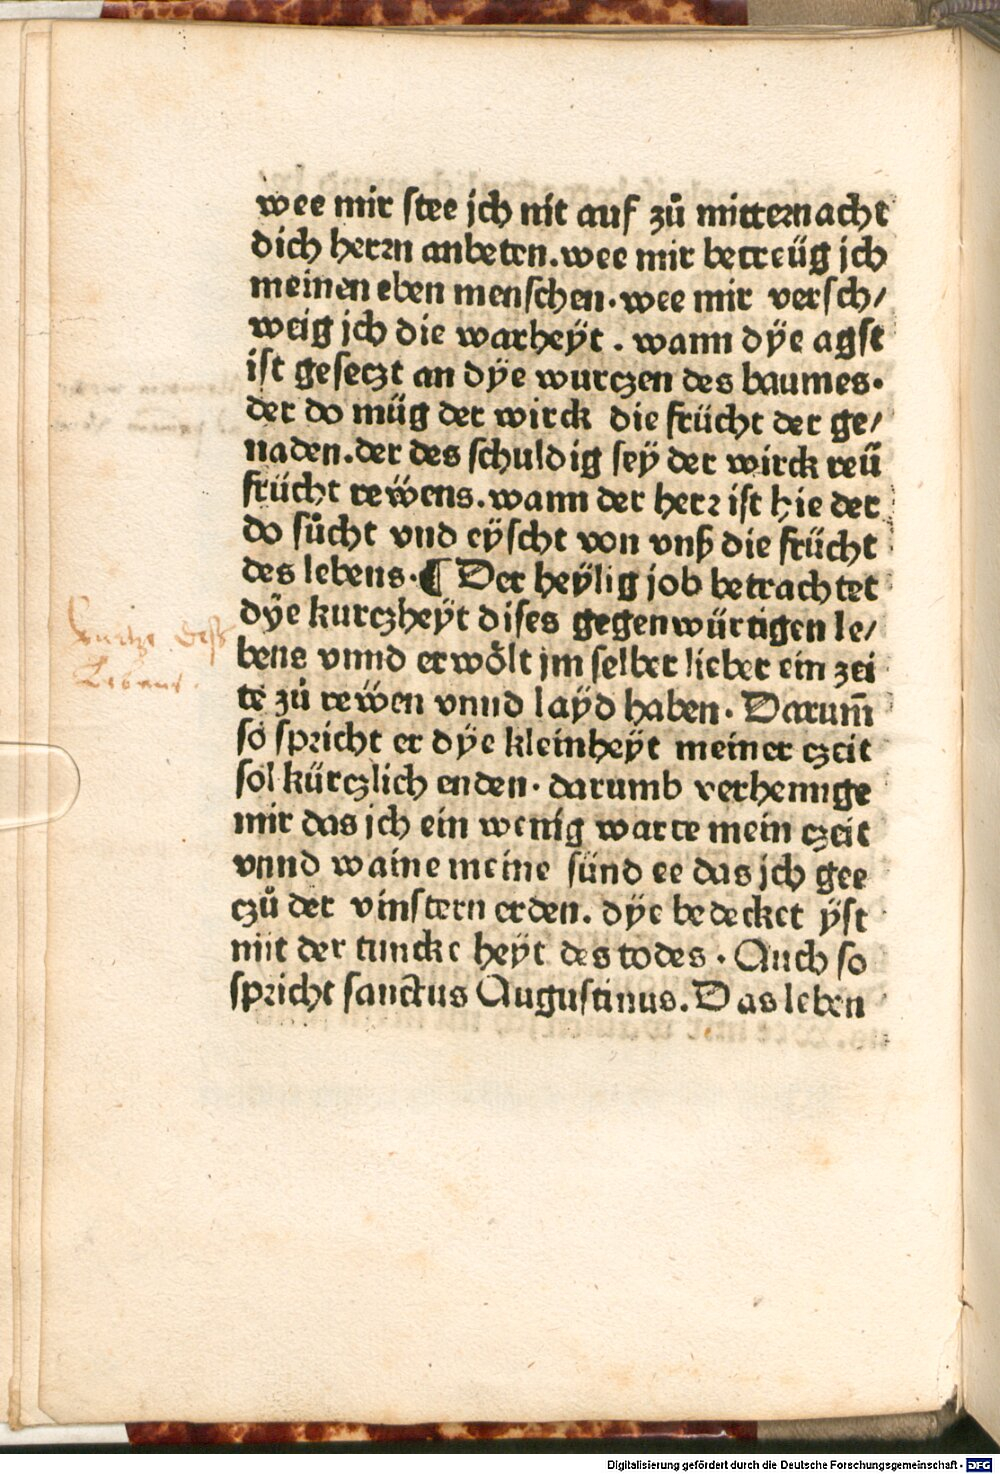 wee mir stee jch nit auf zů mitternacht
dich herrn anbeten. wee mir betreüg jch
meinen eben menschen. wee mir versch/
weig jch die warheÿt. wann dÿe agst
ist geseczt an dÿe wurczen des baumes.
der do müg der wirck die frücht der ge/
naden. der des schuldig seÿ der wirck reü
frücht reẅens. wann der herr ist hie der
do sůcht vnd eÿscht von vnß die frücht
des lebens. ¶ Der heÿlig job betrachtet
dÿe kurczheÿt dises gegenwürtigen le/
bens vnnd erwőlt jm selber lieber ein zei
te zů reẅen vnnd laÿd haben. Darum̄
so spricht er dÿe kleinheÿt meiner czeit
sol kürczlich enden. darumb verhennge
mir das jch ein wenig warte mein czeit
vnnd waine meine sünd ee das jch gee
czů der vinstern erden. dÿe bedecket ÿst
mit der tuncke heÿt des todes. Auch so
spricht sanctus Augustinus. Das leben
Kurtze deß
Lebens.
Digitalisierung gefördert durch die Deutsche Forschungsgemeinschaft - DFG